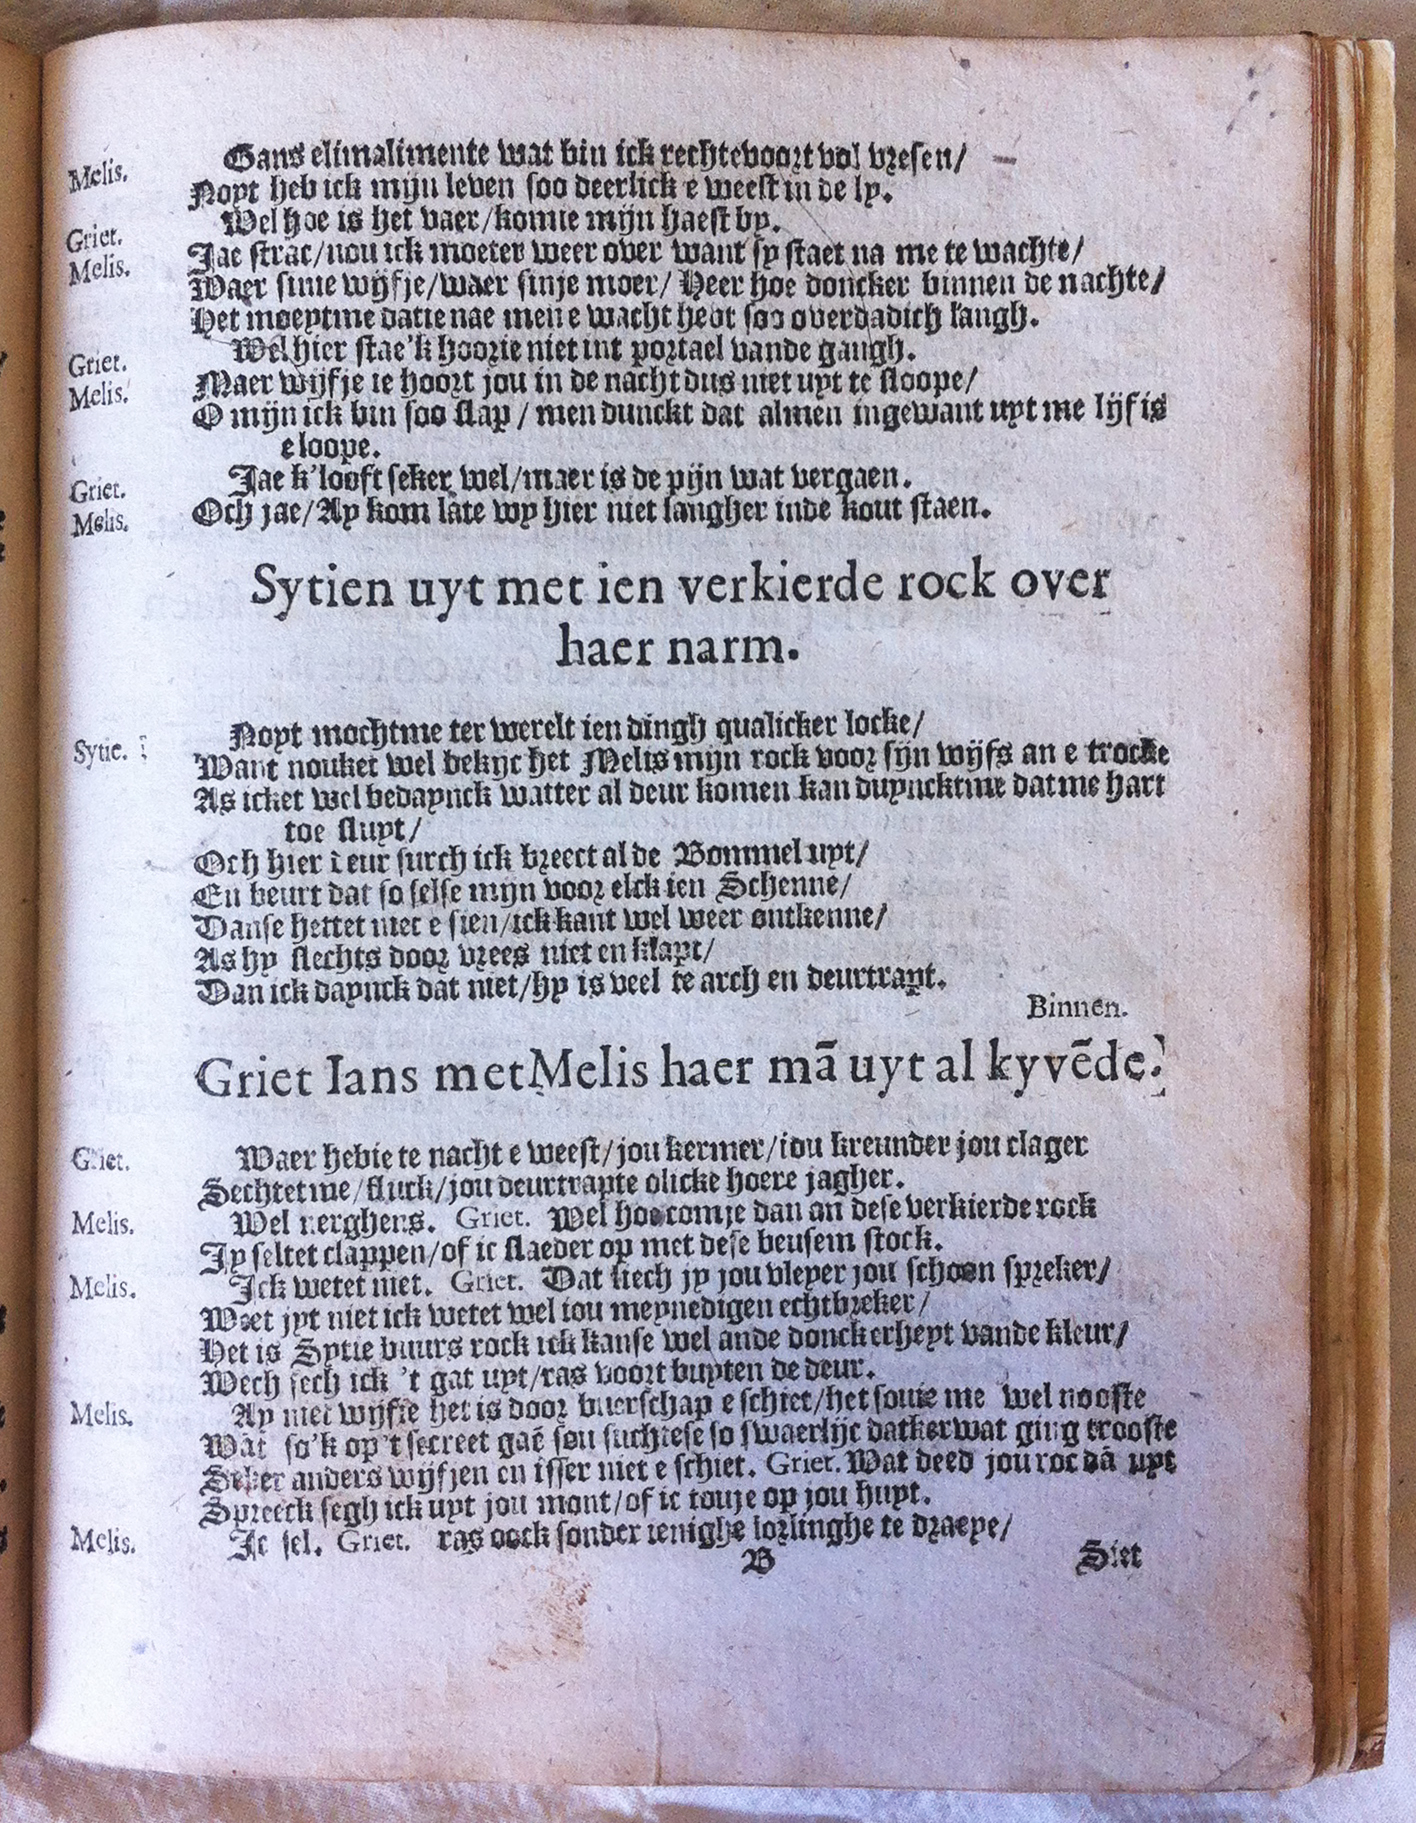 Melis. Gans elimalimente wat bin ick rechtevoort vol vresen/
Noyt heb ick mijn leven soo deerlick e weest in de ly.
Griet. Wel hoe is het vaer/komme mijn haest by.
Melis. Jae strac/nou ick moeter weer over want sy staet na me te wachte/
Waer sinie wijfje/waer sinje moer/ Heer hoe doncker binnen de nachte/
Het moeytme datie nae men e wacht hebt soo overdadich langh.
Griet. Wel hier stae'k hoorie niet int portael vande gangh.
Melis. Maer wijfje ie hoort jou in de nacht dus niet uyt te sloope/
O mijn ick bin soo slap/ men dunckt dat al men ingewant uyt me lijf is
e loope.
Griet. Jae k'looft seker wel/maer is de pijn wat vergaen.
Melis. Och jae/Ay kom late wy hier niet langher inde kout staen.
Sytien uyt met ien verkierde rock over
haer narm.
Sytie. Noyt mochtme ter werelt ien dingh qualicker locke/
Want nouket wel bekijc het Melis mijn rock voor sijn wijfs an e trocke
As icket wel bedaynck watter al deur komen kan duyncktme datme hart
toe sluyt/
Och hier deur surch ick breect al de Bommel uyt/
En beurt dat so selse mijn voor elck ien Schenne/
Danse hettet niet e sien/ick kant wel weer ontkenne/
As hy slechts door vrees niet en klapt/
Dan ick daynck dat niet/hy is veel te arch en deurtrapt.
Binnen.
Griet Ians met Melis haer mā uyt al kyvēde.
Griet. Waer hebie te nacht e weest/jou kermer/iou kreunder jou clager
Sechtetme/fluck/jou deurtrapte olicke hoere jagher.
Melis. Wel nerghens. Griet. Wel hoe comje dan an dese verkierde rock
Jy seltet clappen/of ic slaeder op met dese beusem stock.
Melis. Ick wetet niet. Griet. Dat liech jy jou vleyer jou schoon spreker/
Weet jyt niet ick wetet wel iou meynedigen echtbreker/
Het is Sytie buurs rock ick kanse wel ande donckerheyt vande kleur/
Wech sech ick 't gat uyt/ras voort buyten de deur.
Melis. Ay niet wijfie het is door buerschap e schiet/het souie me wel nooste
Wāt so'k op't secreet gaē sou suchtese so swaerlijc datker wat ging trooste
Seker anders wijfjen en isser niet e schiet. Griet. Wat deed jou roc dā uyt
Spreeck segh ick uyt jou mont/of ic touje op jou huyt.
Melis. Ic sel. Griet. ras oock sonder ienighe lorlinghe te draeye/
B Siet